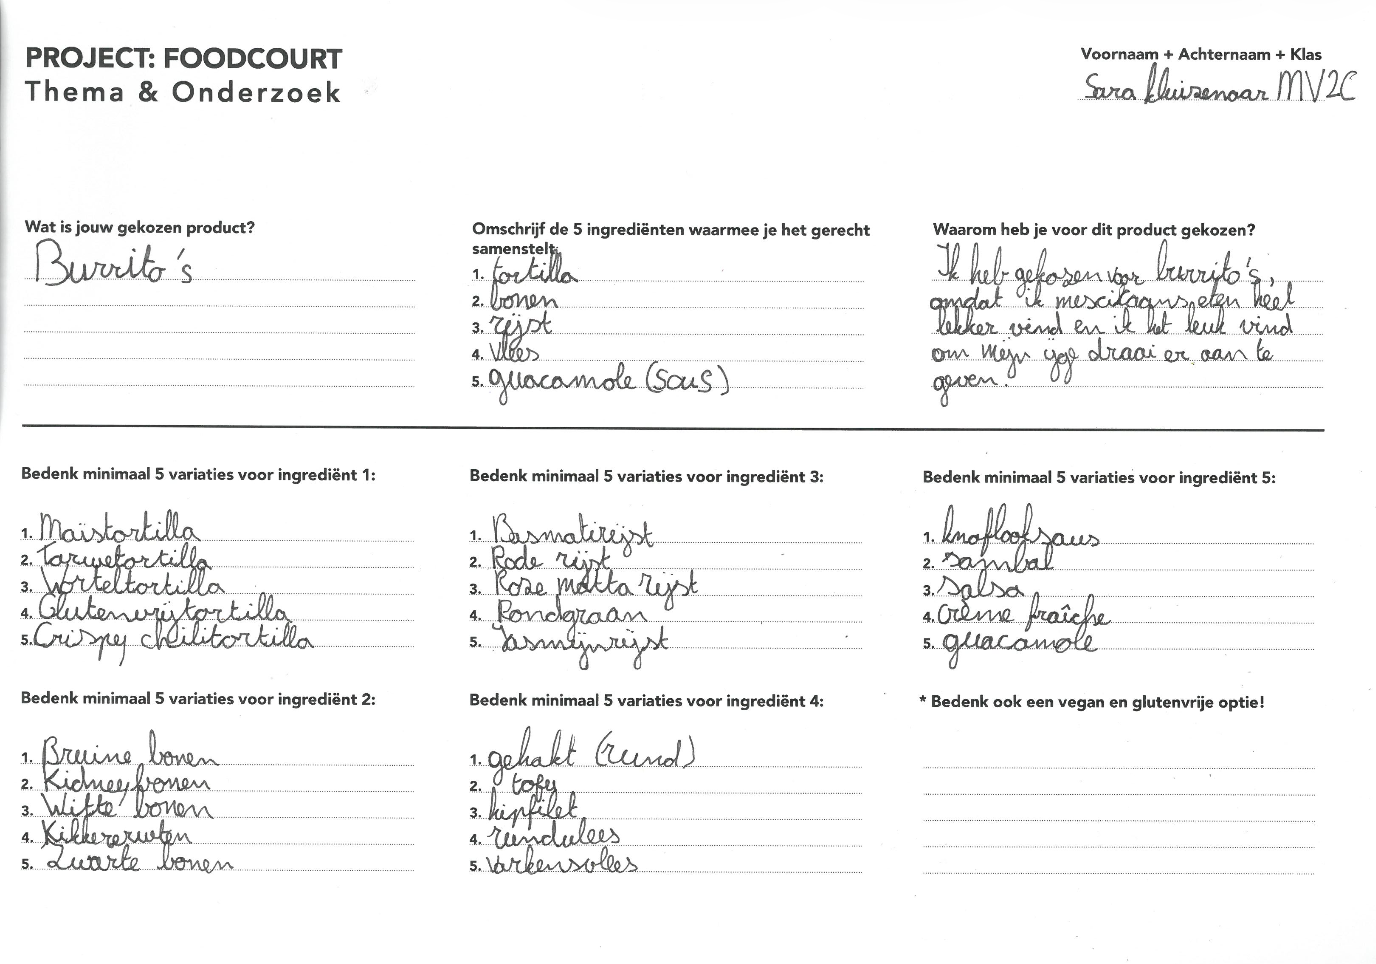 PROJECT: FOODCOURT
Thema & Onderzoek
Voornaam + Achternaam + Klas
Sara Kluizenaar MV2C
Wat is jouw gekozen product?
Burrito's
Omschrijf de 5 ingrediënten waarmee je het gerecht
samenstelt.
1. tortilla
2. bonen
3. rijst
4. vlees
5. guacamole (saus)
Waarom heb je voor dit product gekozen?
Ik heb gekozen voor burrito's,
omdat ik mescicaans eten heel
lekker vind en ik het leuk vind
om mijn ijge draai er aan te
geven.
Bedenk minimaal 5 variaties voor ingrediënt 1:
1. Maïstortilla
2. Tarwetortilla
3. Worteltortilla
4. Glutenvrijtortilla
5. Crispy chilitortilla
Bedenk minimaal 5 variaties voor ingrediënt 3:
1. Basmatirijst
2. Rode rijst
3. Roze matta rijst
4. Rondgraan
5. Jasmijnrijst
Bedenk minimaal 5 variaties voor ingrediënt 5:
1. knoflooksaus
2. sambal
3. salsa
4. Crème fraîche
5. guacamole
Bedenk minimaal 5 variaties voor ingrediënt 2:
1. Bruine bonen
2. Kidneybonen
3. Witte bonen
4. Kikkererwten
5. Zwarte bonen
Bedenk minimaal 5 variaties voor ingrediënt 4:
1. gehakt (rund)
2. tofu
3. kipfilet
4. rundvlees
5. Varkensvlees
* Bedenk ook een vegan en glutenvrije optie!